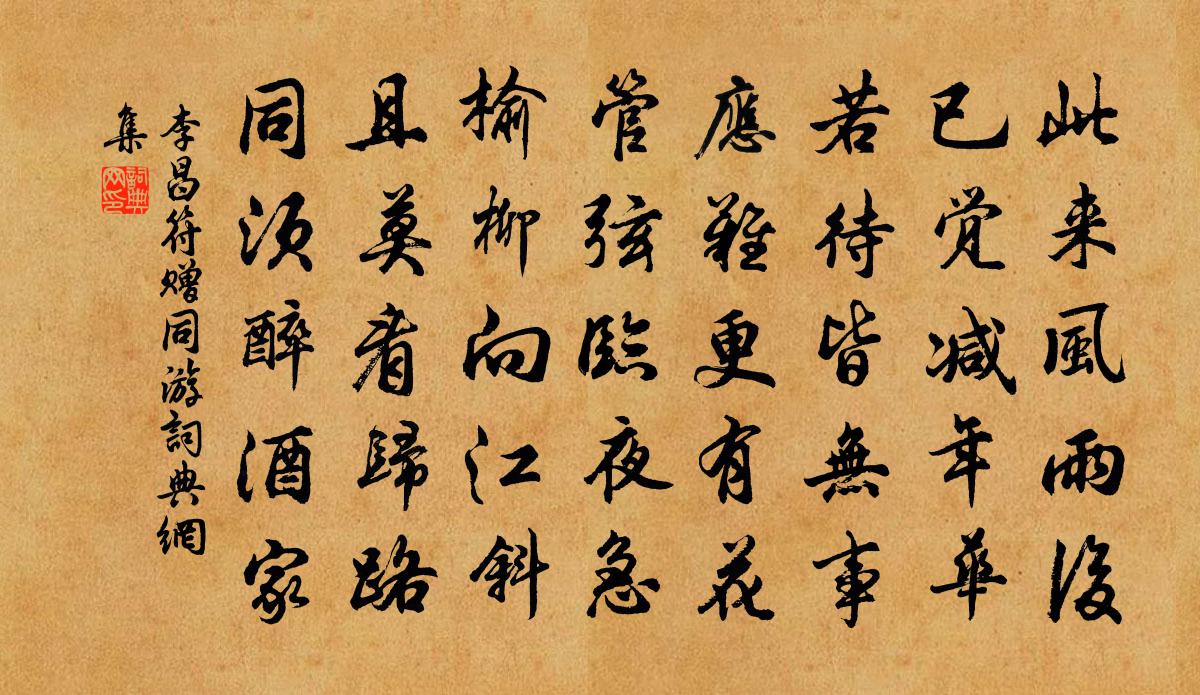 此来風雨後
已觉减年華
若待皆無事
應難更有花
管弦臨夜急
榆柳向江斜
且莫看歸路
同须醉酒家
李昌符赠同游詞典網
集
詞典
网印